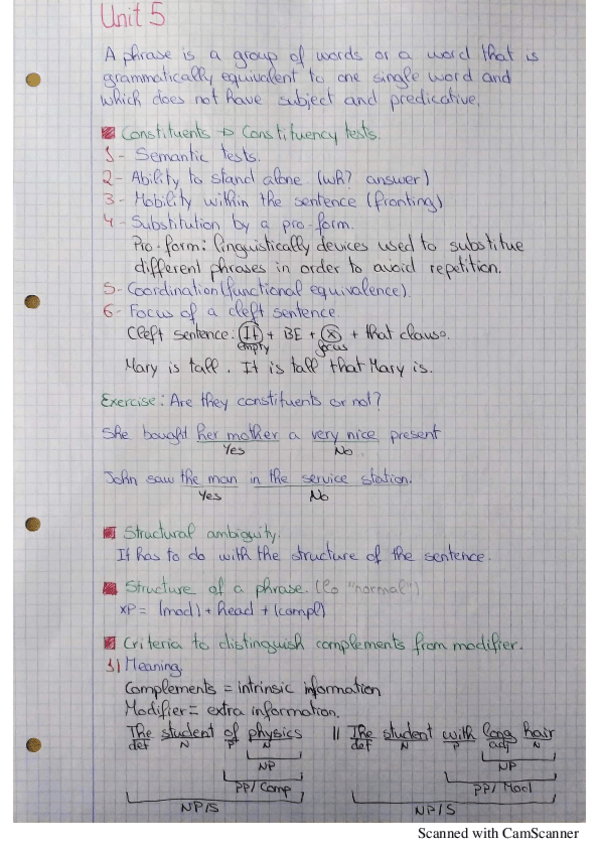 Unit 5
A phrase is a group of words or a word that is
grammatically equivalent to one single word and
which does not have subject and predicative.
Constituents → Constituency tests.
1- Semantic tests.
2- Ability to stand alone (wh? answer)
3- Mobility within the sentence (fronting)
4- Substitution by a pro-form.
Pro-form: linguistically devices used to substitue
different phrases in order to avoid repetition.
5- Coordination (functional equivalence)
6- Focus of a cleft sentence.
Cleft sentence: It + BE + X + that clause.
empty focus
Mary is tall. It is tall that Mary is.
Exercise: Are they constituents or not?
She bought her mother a very nice present
Yes No
John saw the man in the service station.
Yes No
Structural ambiguity.
It has to do with the structure of the sentence.
Structure of a phrase. (lo "normal")
XP = (mod) + head + (compl)
Criteria to distinguish complements from modifier.
1) Meaning
Complements = intrinsic information
Modifier = extra information.
The student of physics || The student with long hair
def N P N def N P adj N
NP NP
PP/Comp PP/Mod
NP/S NP/S
Scanned with CamScanner